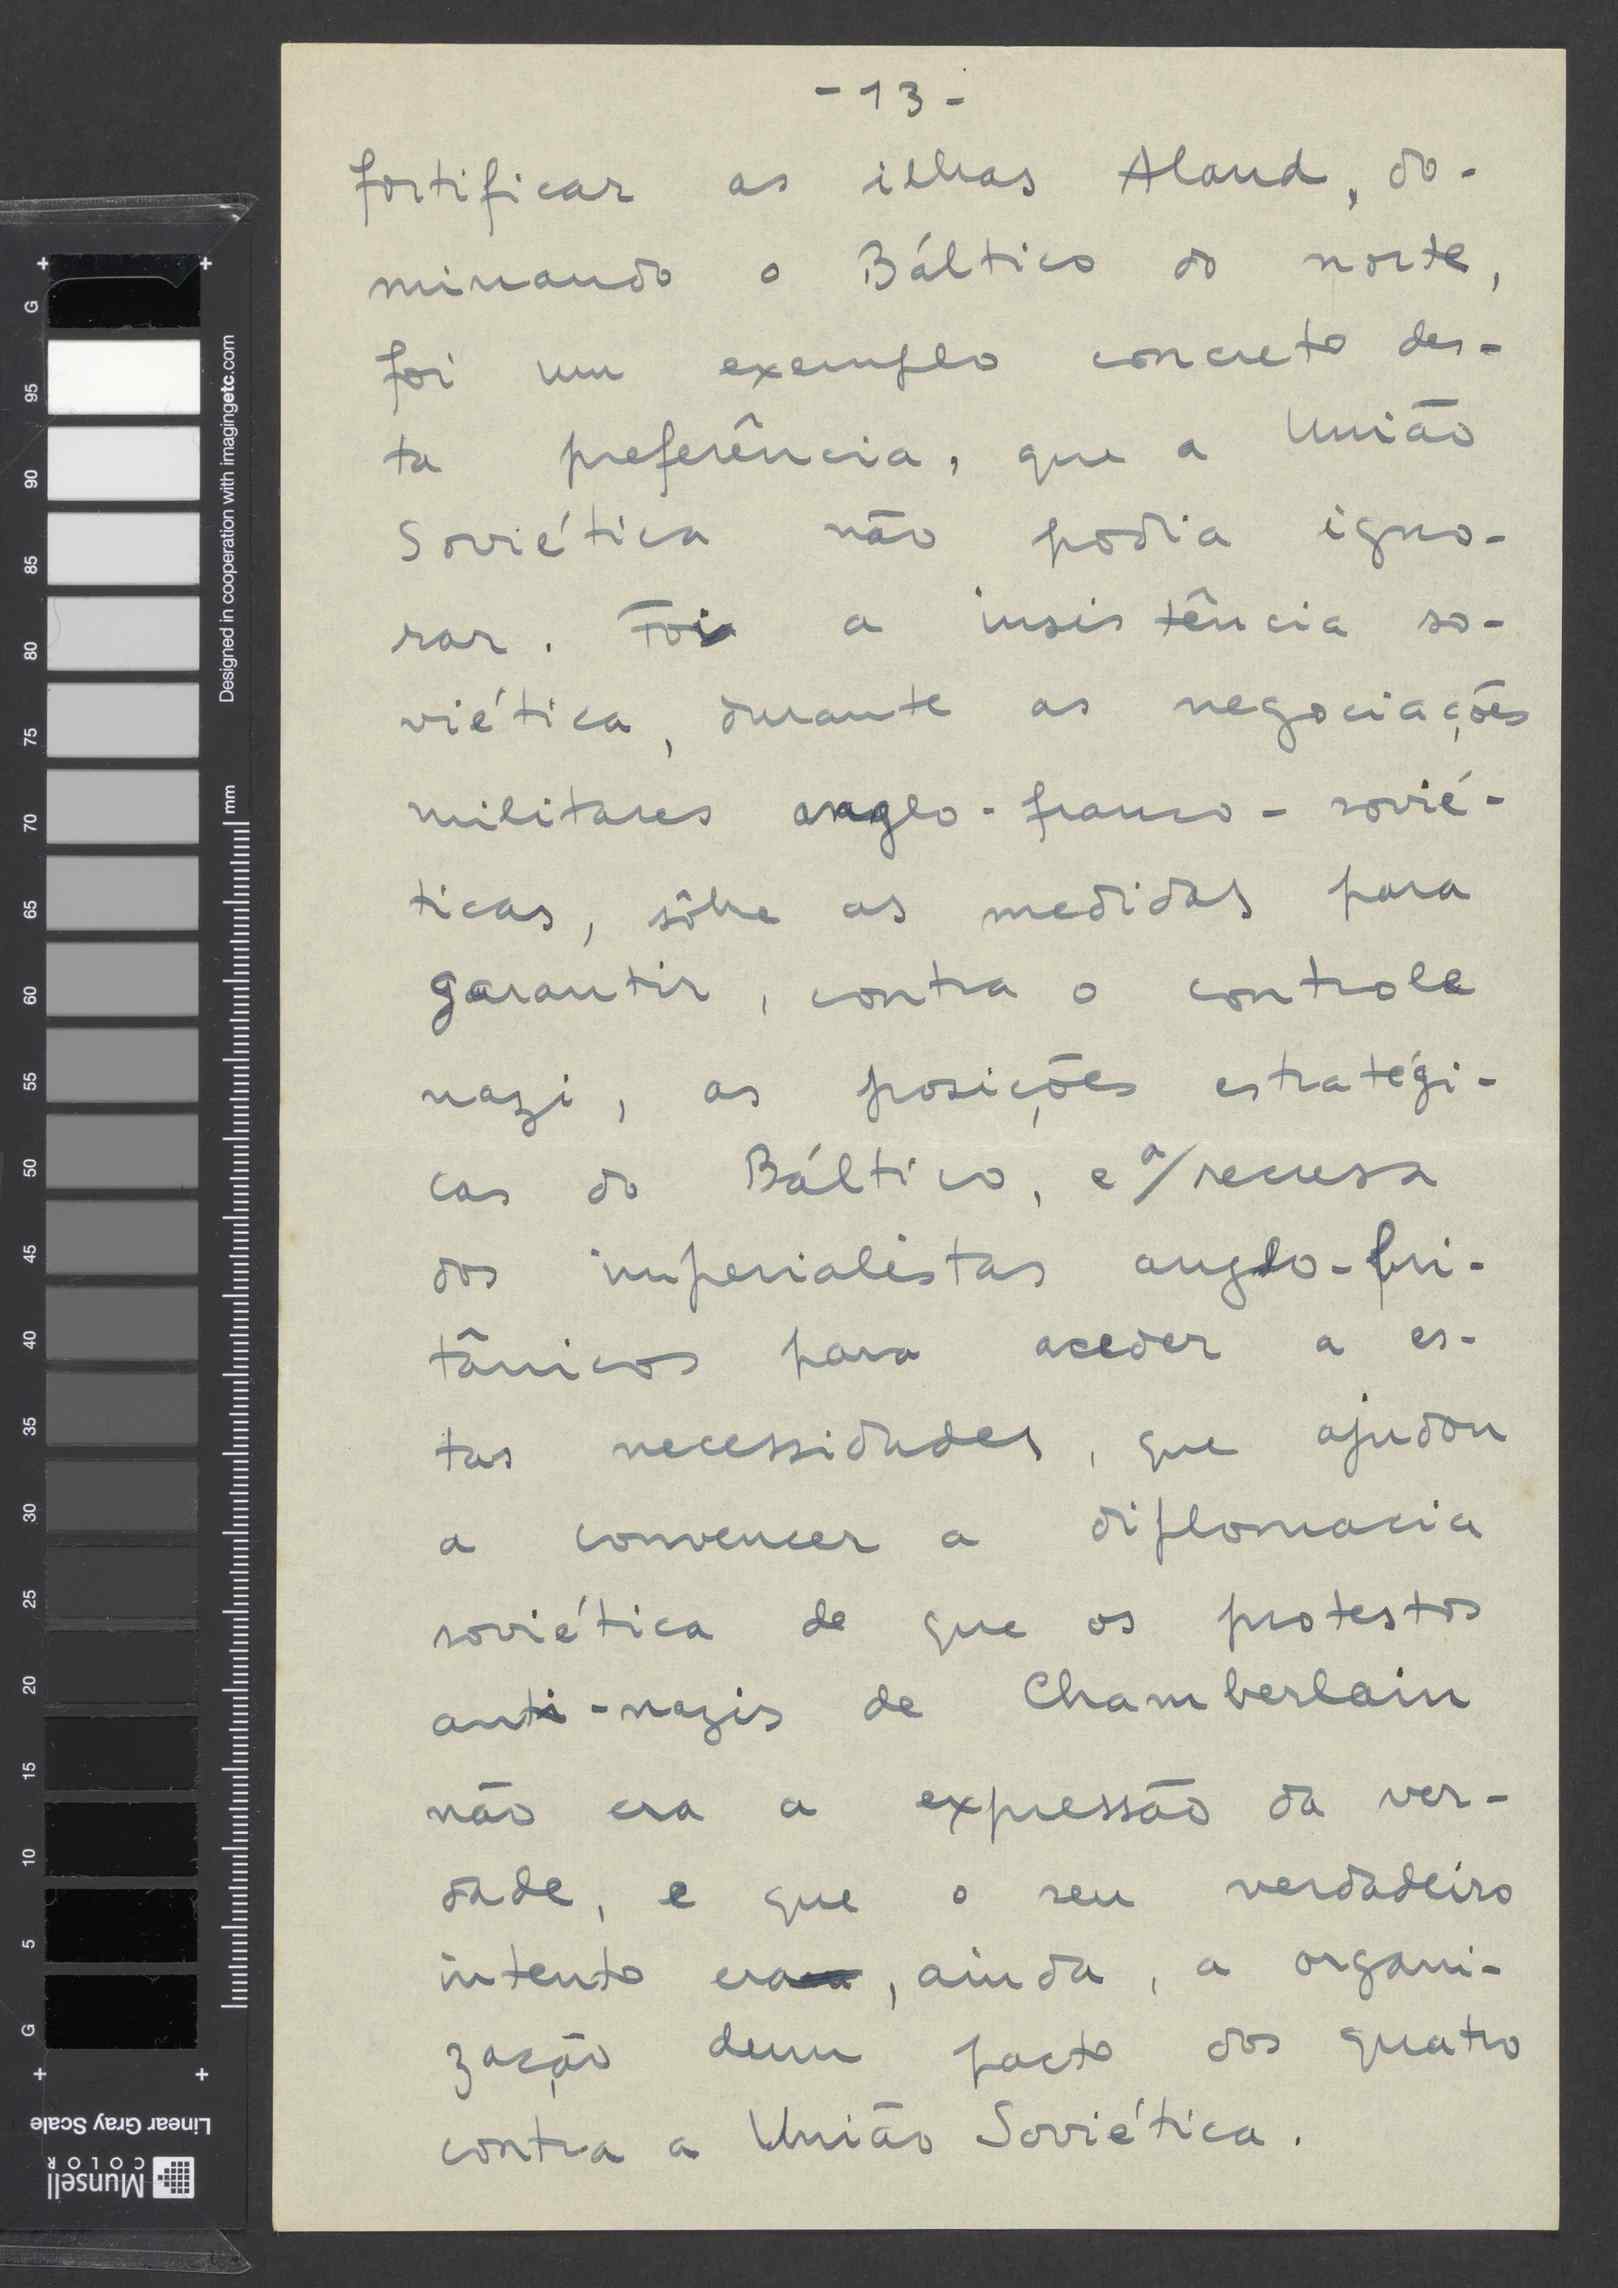 - 13 -
fortificar as ilhas Aland, do-
minando o Báltico do norte,
foi um exemplo concreto des-
ta preferência, que a União
Soviética não podia igno-
rar. Foi a insistência so-
viética, durante as negociações
militares anglo-franco-sovié-
ticas, sôbre as medidas para
garantir, contra o controle
nazi, as posições estratégi-
cas do Báltico, e a/ recusa
dos imperialistas anglo-bri-
tânicos para aceder a es-
tas necessidades, que ajudou
a convencer a diplomacia
soviética de que os protestos
anti-nazis de Chamberlain
não era a expressão da ver-
dade, e que o seu verdadeiro
intento era, ainda, a organi-
zação dum pacto dos quatro
contra a União Soviética.
G
95
90
85
80
75
70
65
60
55
50
45
40
35
30
25
20
15
10
5
G
mm
Designed in cooperation with imagingetc.com
Linear Gray Scale
Munsell
COLOR